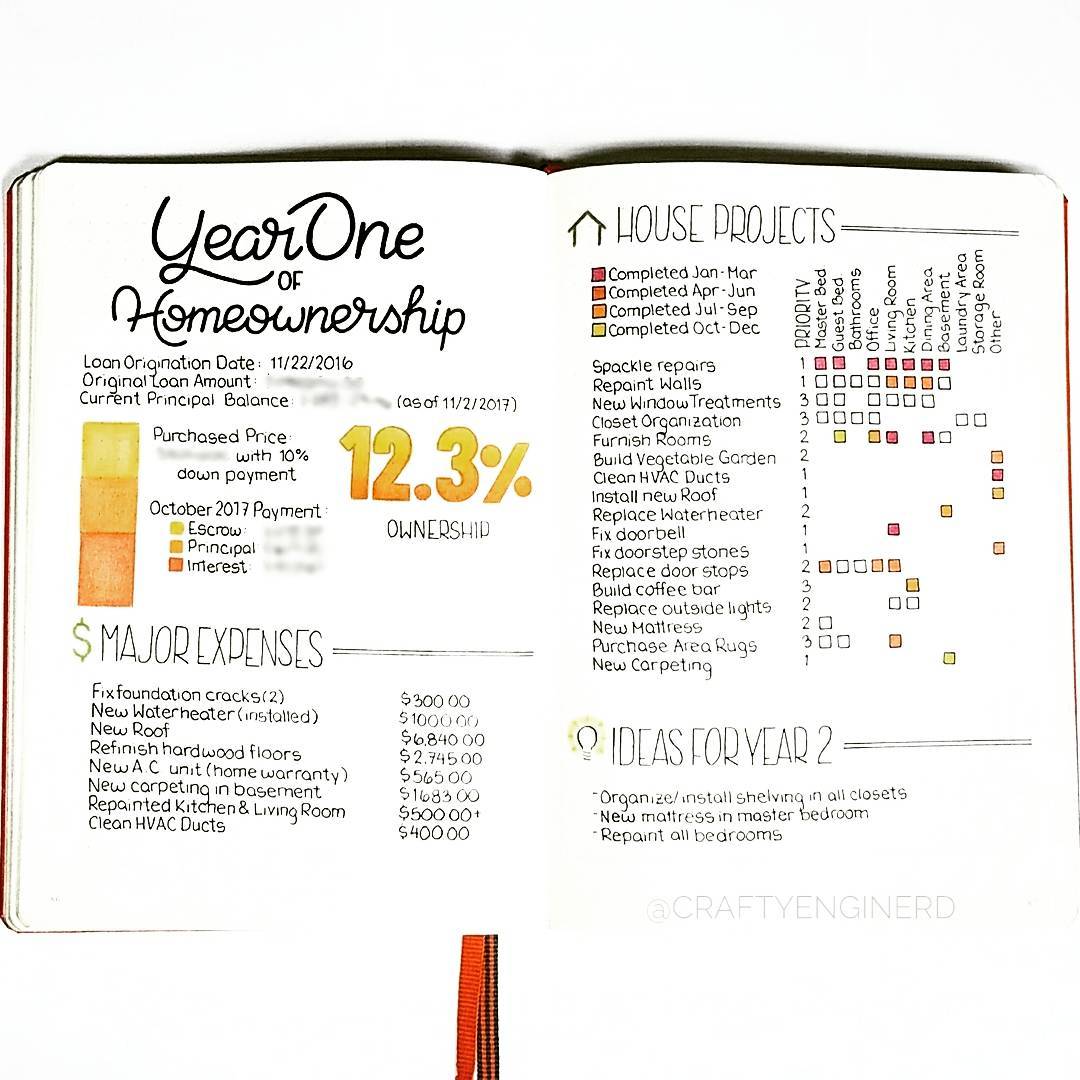 Year One
OF
Homeownership
Loan Origination Date: 11/22/2016
Original Loan Amount:
Current Principal Balance: (as of 11/2/2017)
Purchased Price:
with 10%
down payment
October 2017 Payment:
Escrow:
Principal
Interest:
12.3%
OWNERSHIP
$ MAJOR EXPENSES
Fix foundation cracks (2) $300.00
New Waterheater (installed) $1000.00
New Roof $6,840.00
Refinish hardwood floors $2,745.00
New A.C. unit (home warranty) $565.00
New carpeting in basement $1683.00
Repainted Kitchen & Living Room $500.00+
Clean HVAC Ducts $400.00
HOUSE PROJECTS
Completed Jan-Mar
Completed Apr-Jun
Completed Jul-Sep
Completed Oct-Dec
PRIORITY
Master Bed
Guest Bed
Bathrooms
Office
Living Room
Kitchen
Dining Area
Basement
Laundry Area
Storage Room
Other
Spackle repairs 1
Repaint Walls 1
New Window Treatments 3
Closet Organization 3
Furnish Rooms 2
Build Vegetable Garden 2
Clean HVAC Ducts 1
Install new Roof 1
Replace Waterheater 2
Fix doorbell 1
Fix doorstep stones 1
Replace door stops 2
Build coffee bar 3
Replace outside lights 2
New Mattress 2
Purchase Area Rugs 3
New Carpeting 1
IDEAS FOR YEAR 2
-Organize/install shelving in all closets
-New mattress in master bedroom
-Repaint all bedrooms
@CRAFTYENGINERD